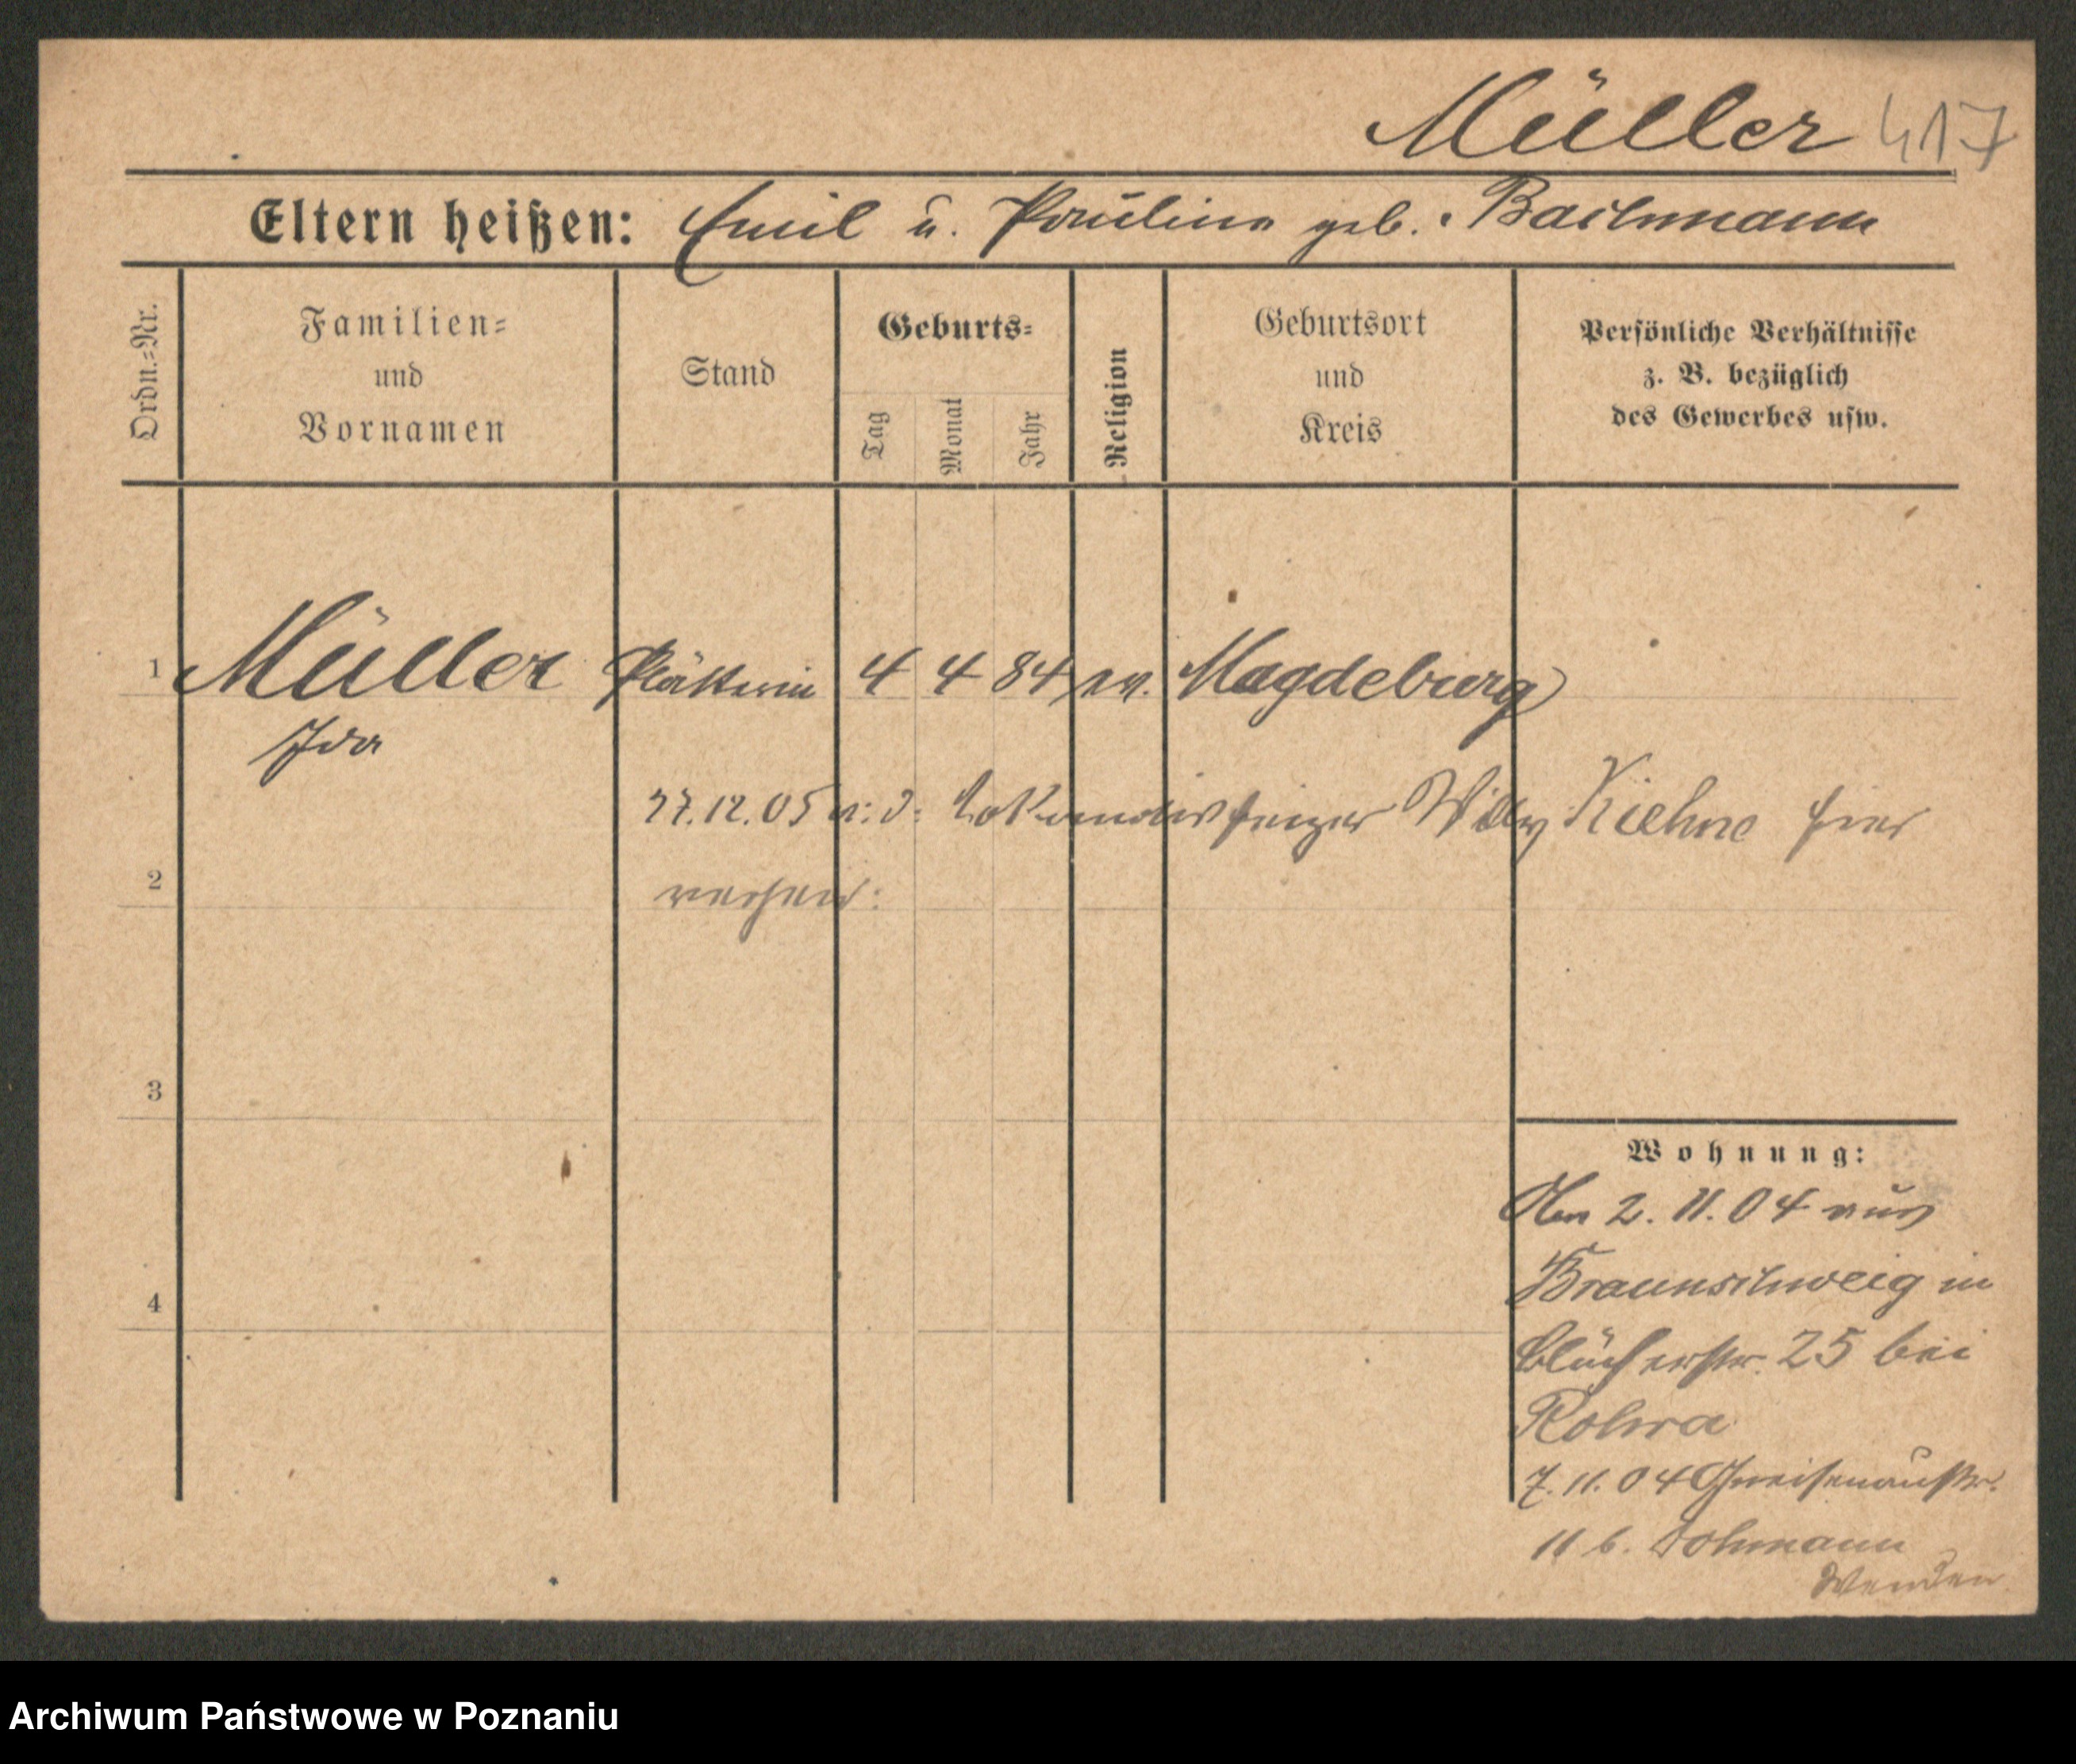 Müller 417
Eltern heißen: Emil u. Pauline geb. Bachmann
Ordn.-Nr.
Familien-
und
Vornamen
Stand
Geburts-
Tag
Monat
Jahr
Religion
Geburtsort
und
Kreis
Persönliche Verhältnisse
z. B. bezüglich
des Gewerbes usw.
1 Müller Plätterin 4 4 84 ev. Magdeburg
Ida
27.12.05 m: d: Lokomotivheizer Willy Kiehne hier
verheir:
2
3
4
Wohnung:
Am 2. 11. 04 aus
Braunschweig in
Blücherstr. 25 bei
Rohra
7. 11. 04 Gneisenaustr.
11 b. Lohmann
Wenden
Archiwum Państwowe w Poznaniu